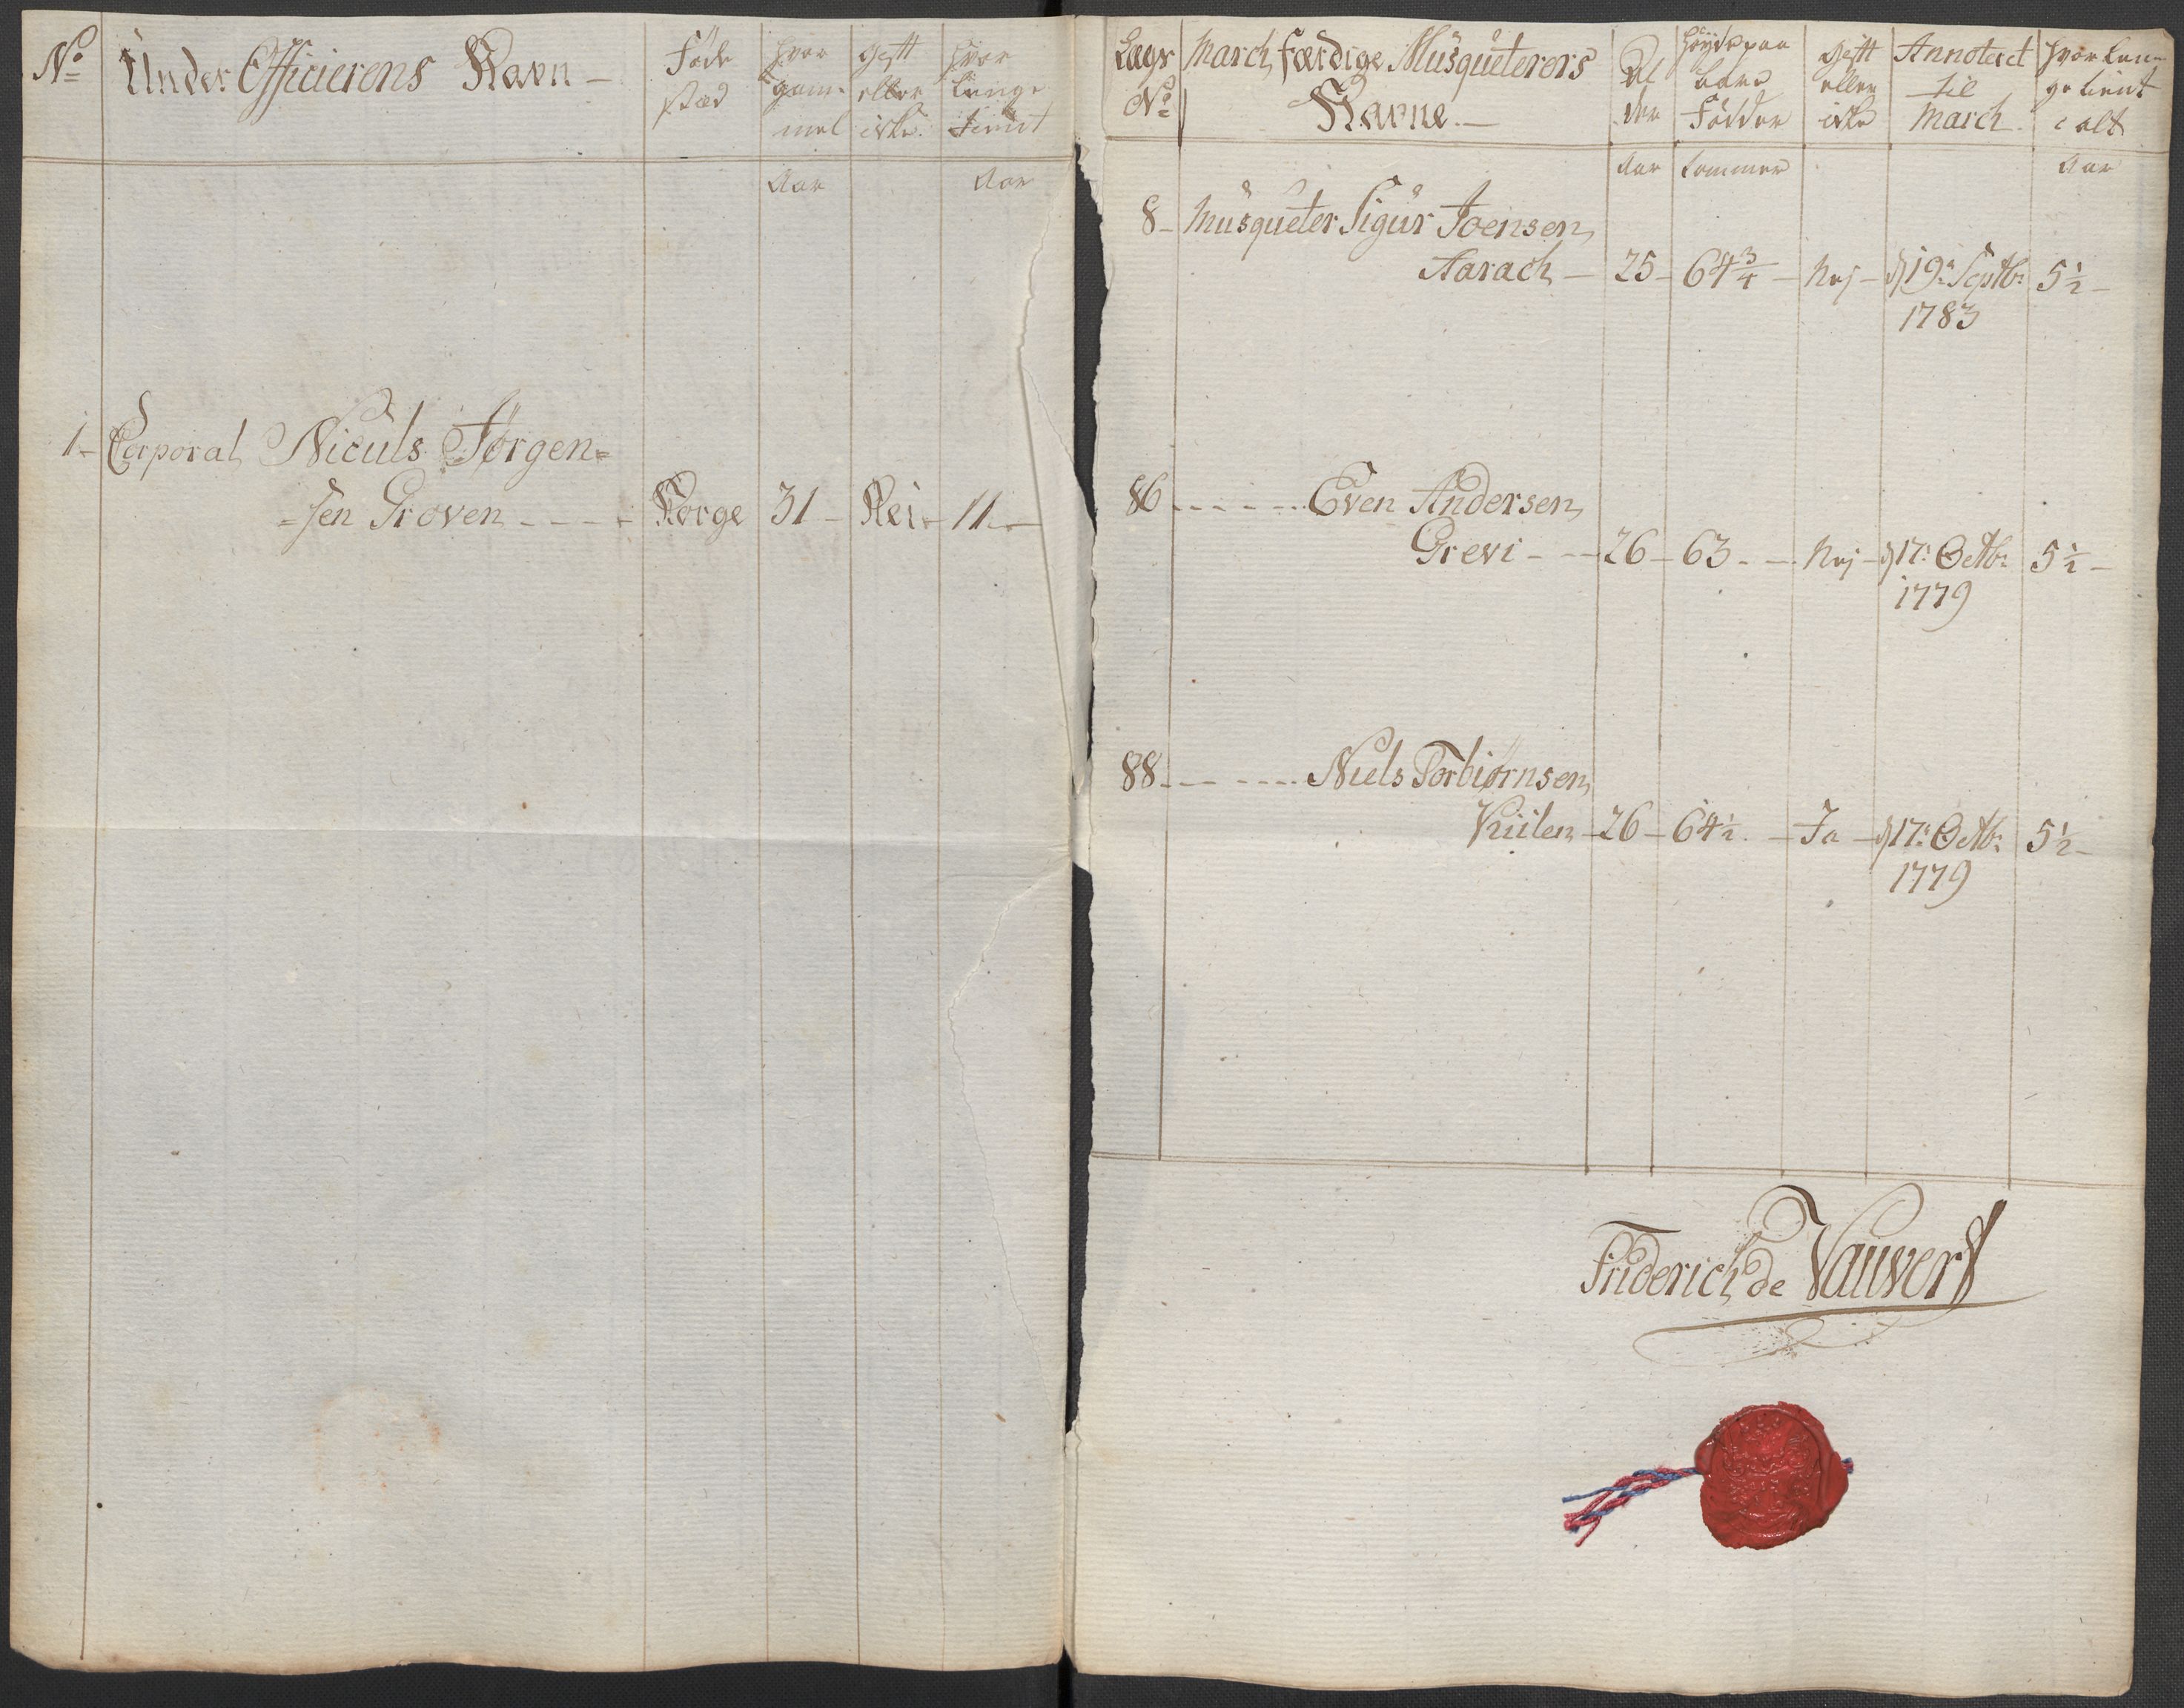 No
Under Officierens Navn —
Føde
stæd
hvor
gam-
mel
gift
eller
ikke.
hvor
længe
tient
Aar
Aar
1- Corporal Niculs Jørgen=
=sen Groven ---- Norge 31 - Nei - 11 -
Lægs
No
March færdige Musqueterers
Navne. —
Al
der
høyde paa
bare
Fødder
gift
eller
ikke
Annoteret
til
March.
hvor læn-
ge tient
i alt
Aar
tommer
Aar
8- Musqueter Sigur Joensen
Aarach — 25- 64 3/4 — Nej - d 19: Septbr: 5 1/2 —
1783
86 ------ Even Andersen
Grevi - -- 26 - 63 - — Nej - d 17: Octbr: 5 1/2 —
1779
88 ------ Niels Torbiørnsen
- 26 - 64 1/2. — Ja - d 17: Octbr: 5 1/2 -
1779
Friderich de Vauvert